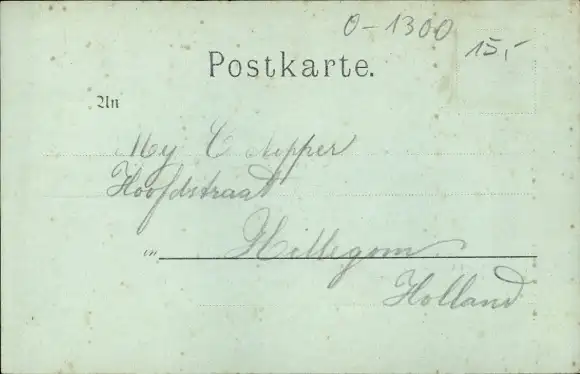 0-1300
15,-
Postkarte.
An
My C
Hoofdstraat
in Hillegom
Holland